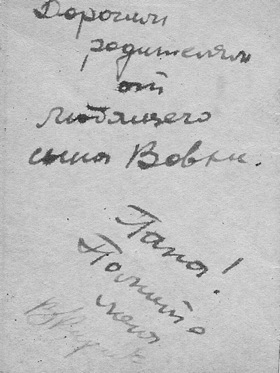 Дорогим
родителям
от
любящего
сына Вовки.
Папа!
Помните
меня